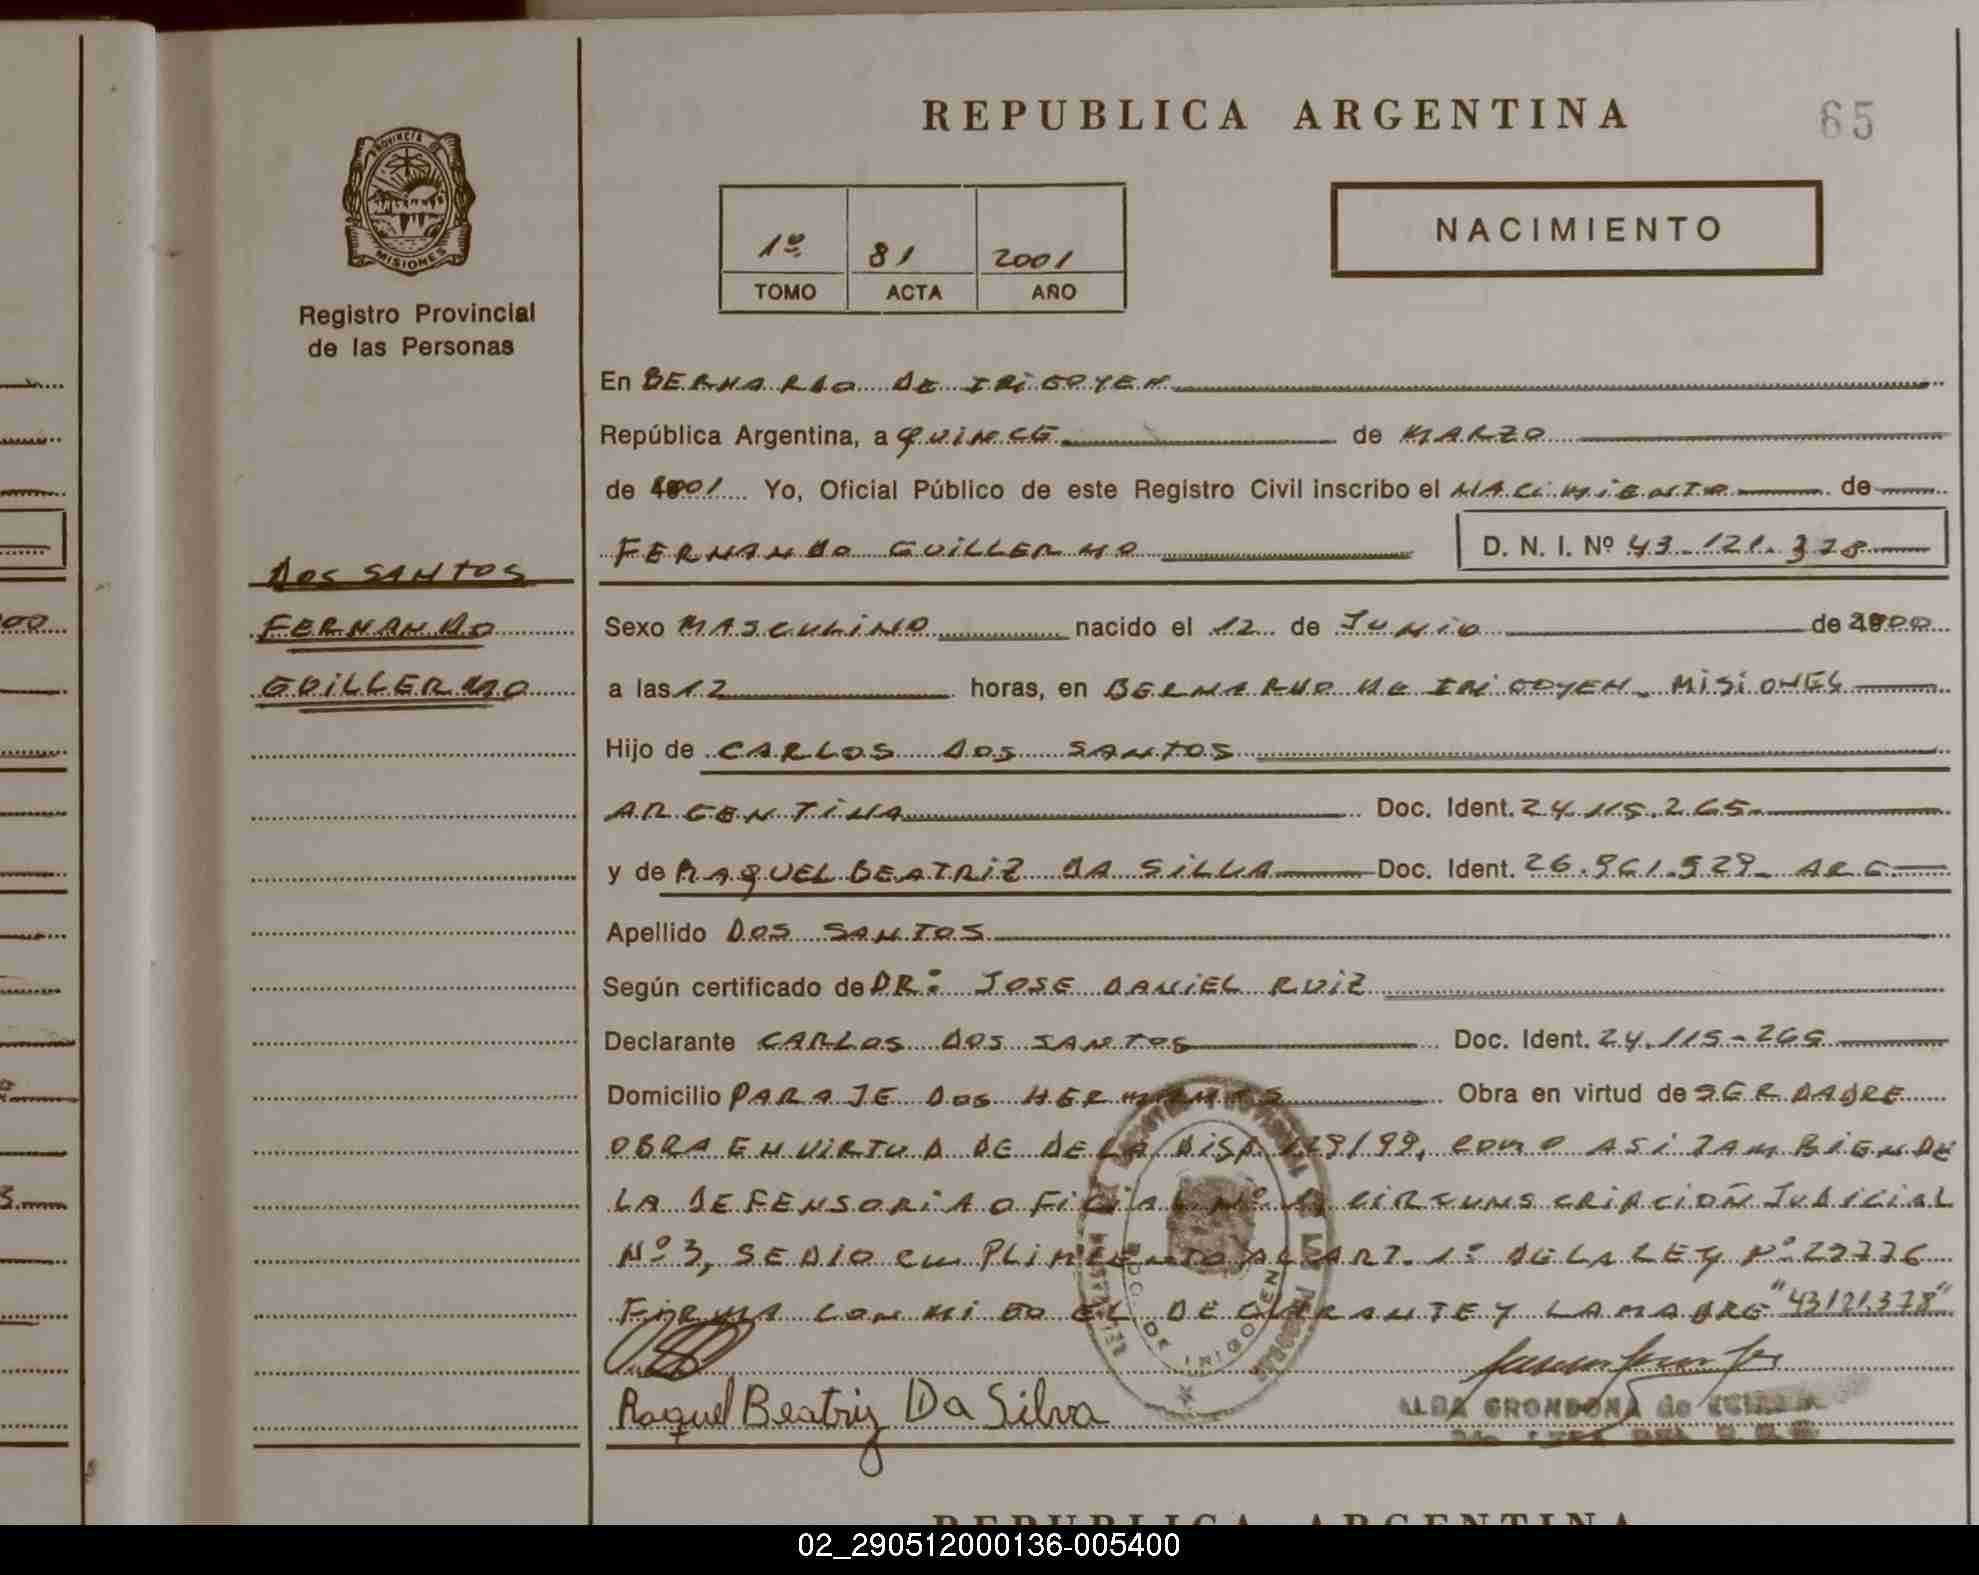 REPUBLICA ARGENTINA
65
PROVINCIA DE
MISIONES
Registro Provincial
de las Personas
1º 81 2001
TOMO ACTA AÑO
NACIMIENTO
En BERNARDO DE IRIGOYEN
República Argentina, a QUINCE de MARZO
de 2001 Yo, Oficial Público de este Registro Civil inscribo el NACIMIENTO de
FERNANDO GUILLERMO D. N. I. Nº 43.121.378
DOS SANTOS
FERNANDO
GUILLERMO
Sexo MASCULINO nacido el 12 de JUNIO de 2000
a las 12 horas, en BERNARDO DE IRIGOYEN. MISIONES
Hijo de CARLOS DOS SANTOS
ARGENTINA Doc. Ident. 24.115.265
y de RAQUEL BEATRIZ DA SILVA Doc. Ident. 26.961.929 ARG
Apellido DOS SANTOS
Según certificado de DR: JOSE DANIEL RUIZ
Declarante CARLOS DOS SANTOS Doc. Ident. 24.115-265
Domicilio PARAJE DOS HERMANAS Obra en virtud de SER PADRE
OBRA EN VIRTUD DE DE LA DISP. 129/99, COMO ASI TAMBIEN DE
LA DEFENSORIA OFICIAL Nº 1, CIRCUNSCRIPCION JUDICIAL
Nº 3, SE DIO CUMPLIMIENTO AL ART. 1º DE LA LEY Nº 22776
FIRMA CONMIGO EL DECLARANTE Y LA MADRE "43121.378"
BDO. DE IRIGOYEN
Raquel Beatriz Da Silva
ALBA GRONDONA de
REPUBLICA ARGENTINA
02_290512000136-005400